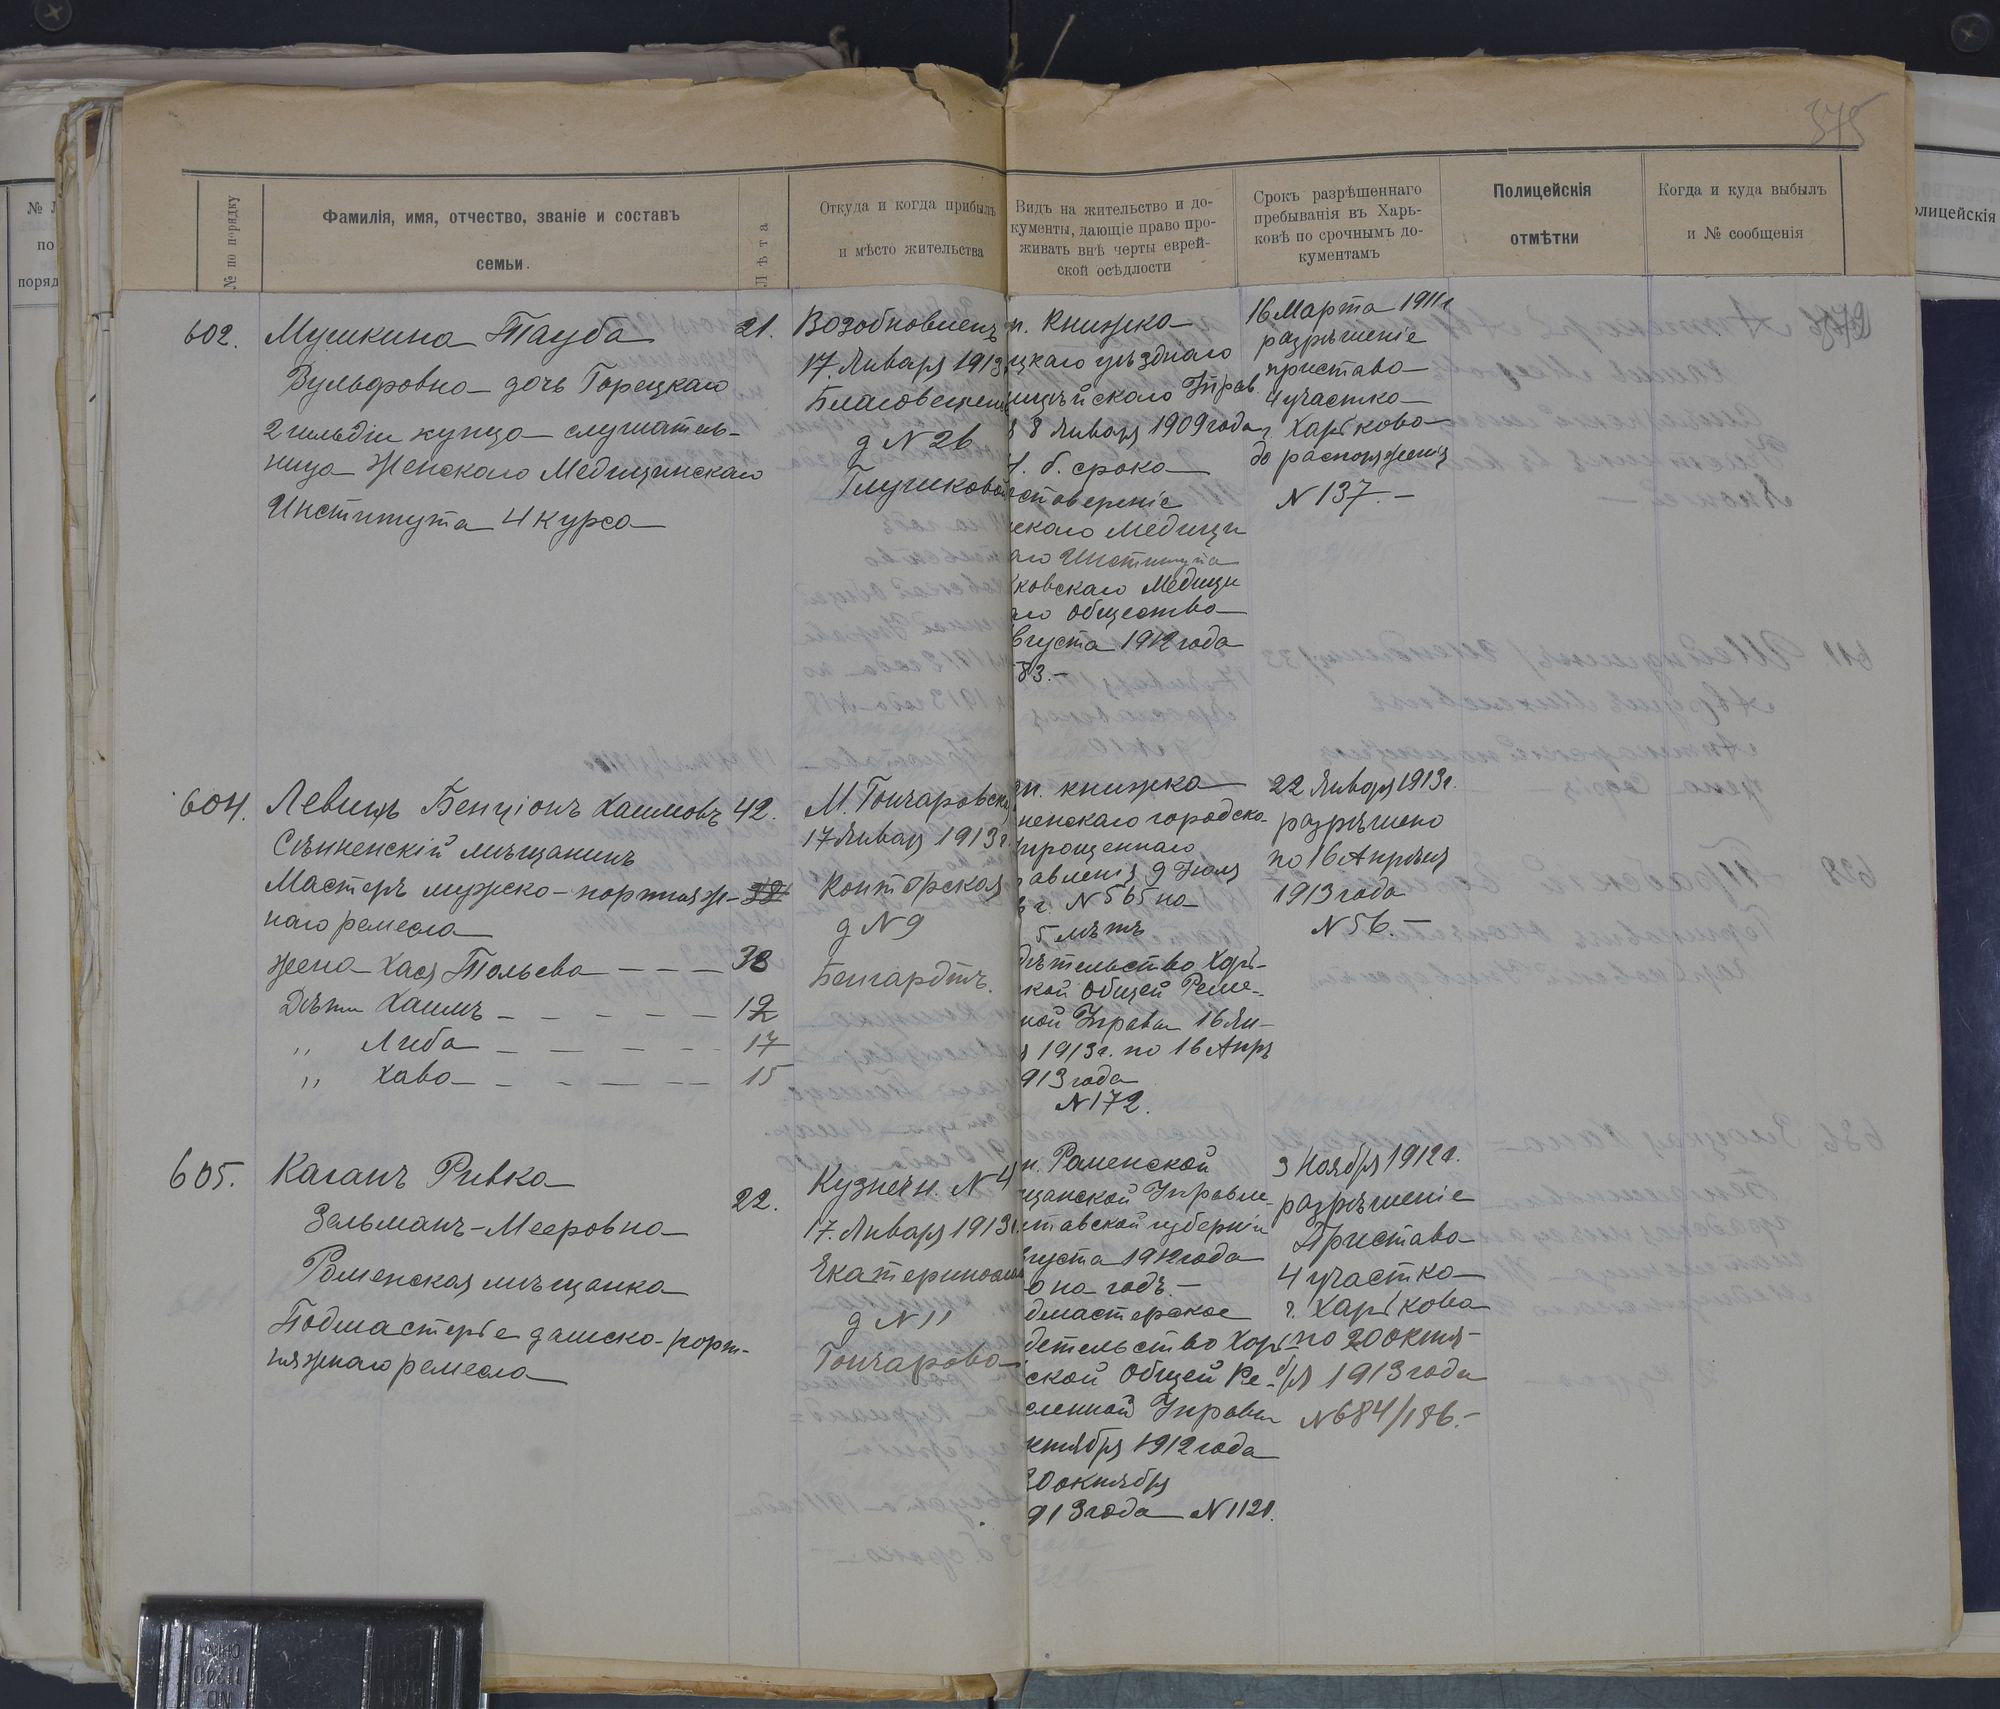 375
№ по порядку
Фамилія, имя, отчество, званіе и составъ
семьи.
Лѣта
Откуда и когда прибылъ
и мѣсто жительства
Видъ на жительство и до-
кументы, дающіе право про-
живать внѣ черты еврей-
ской осѣдлости
Срокъ разрѣшеннаго
пребыванія въ Харь-
ковѣ по срочнымъ до-
кументамъ
Полицейскія
отмѣтки
Когда и куда выбылъ
и № сообщенія
602.
Мушкина Тауба
Вульфовна дочь Горецкаго
2 гильдіи купца слушатель-
ница Женскаго Медицинскаго
Института 4 курса
21.
Возобновленъ
17. Января 1913
Благовещенс
д № 26
Глушковой
п. книжка
ецкаго уѣзднаго
лицейскаго Управ.
8 Января 1909 года
Ч. б. срока
стовереніе
скаго Медици
аго Института
ковскаго Медици
аго Общества
вгуста 1912 года
83.-
16 Марта 1911 г
разрѣшеніе
пристава
4 участка
г. Харькова
до распоряженія
№ 137.-
604.
Левинъ Бенціонъ Хаимовъ
Сѣнненскій мѣщанинъ
Мастеръ мужско-портняж-
наго ремесла
жена Хася Тольева
Дѣти Хаимъ
" Либа
" Хава
42.
38
12
17
15
М. Гончаровск
17 Января 1913 г.
Конторская
д № 9
Бенгардтъ.
п. книжка
ненскаго городско-
упрощеннаго
авленія 9 Іюля
г. № 565 на
5 лѣтъ
дѣтельство Харь-
кой Общей Реме-
ной Управы 16 Ян-
я 1913 г. по 16 Апр
913 года
№ 172.
22 Января 1913 г.
разрѣшено
по 16 Апрѣля
1913 года
№ 56.-
605.
Каганъ Ривка
Зельманъ-Мееровна
Роменская мѣщанка
Подмастерье дамско-порт-
няжнаго ремесла
22.
Кузнечн. № 4
17. Января 1913 г.
Екатериносла
д № 11
Гончарова
п. Роменской
щанской Управле-
лтавской губерніи
вгуста 1912 года
0 на годъ.-
дмастерское
детельство Харь
ской Общей Ре-
сленной Управы
ктября 1912 года
20 октября
913 года № 1120.
3 Ноября 1912 г.
разрѣшеніе
Пристава
4 участка
г. Харькова
по 20 октя-
бря 1913 года
№ 684/186.-